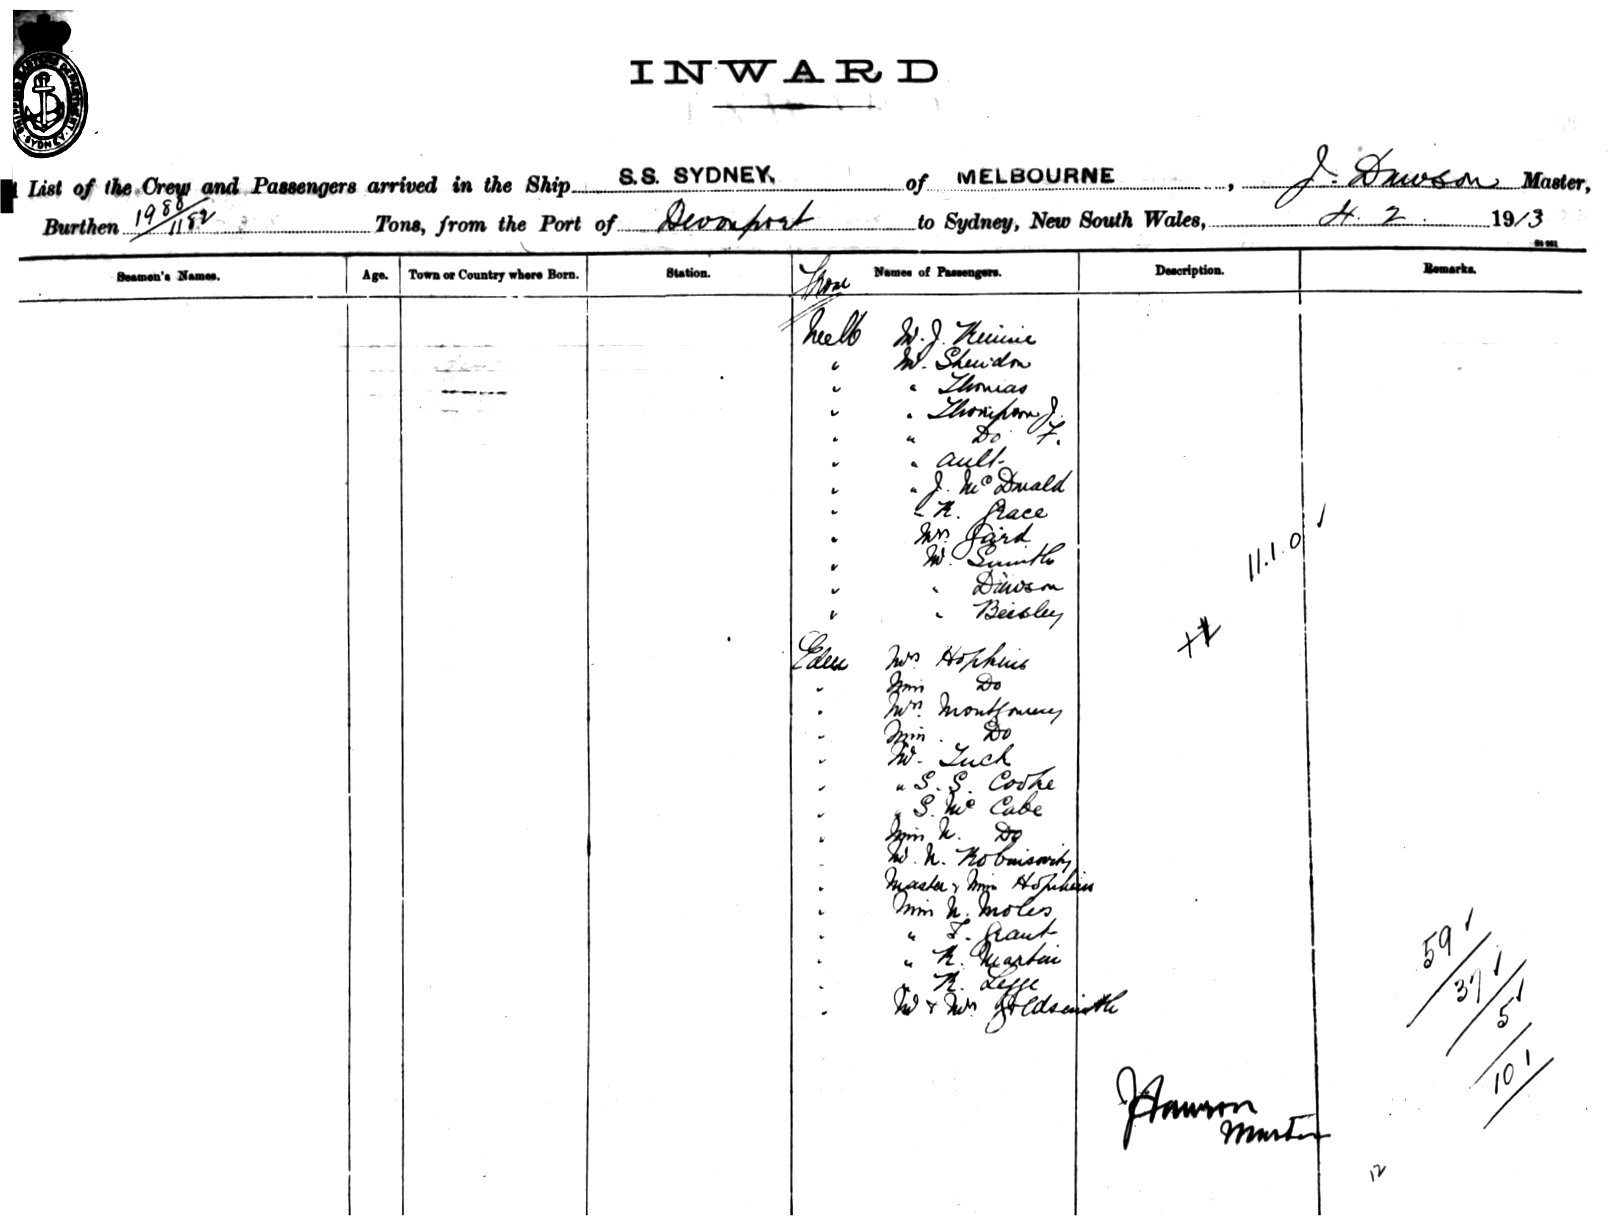 SHIPPING MASTERS DEPARTMENT · SYDNEY ·
INWARD
List of the Crew and Passengers arrived in the Ship S.S. SYDNEY, of MELBOURNE, J. Dawson Master,
Burthen 1988/1182 Tons, from the Port of Devonport to Sydney, New South Wales, 4. 2. 1913
Seamen's Names. Age. Town or Country where Born. Station. From Names of Passengers. Description. Remarks.
Melb M. J.
" Mr. Sheridon
" " Thomas
" " Thompson J.
" " Do F.
" " Ault
" " J. McDonald
" " R. Grace
" Mrs.
" Mr. Smith
" " Dawson
" " Beesley
11.1.0
Eden Mrs. Hopkins
" Miss Do
" Mrs. Montgomery
" Miss Do
" Mr. Tuck
" " S. S. Cooke
" " S. McCabe
" Miss N. Do
" Mr. N.
" Master & Miss Hopkins
" Miss N. Moles
" " F. Grant
" " R. Martin
" " R. Legge
" Mr & Mrs Goldsmith
59
37
5
101
J Dawson
Master
12